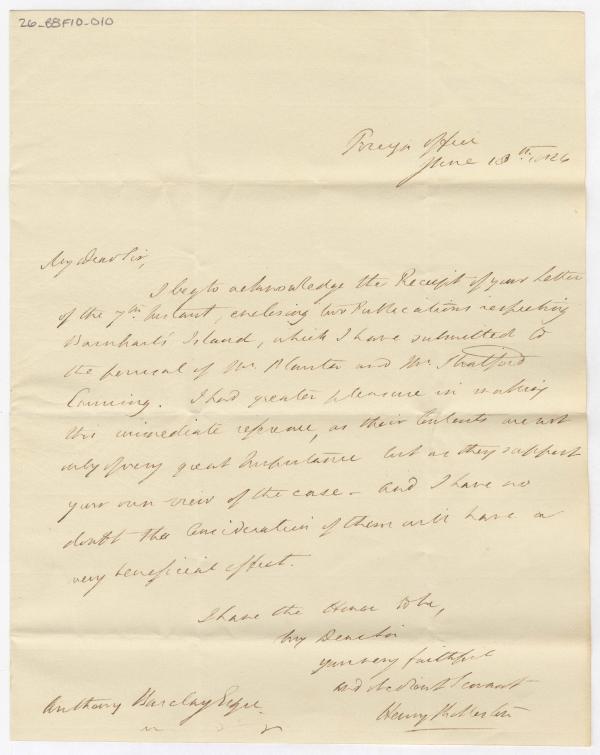 26_BBF10_010
Foreign Office
June 13th. 1826
My Dear Sir,
I beg to acknowledge the Receipt of your Letter
of the 7th. Instant, enclosing two Publications respecting
Barnhart's Island, which I have submitted to
the perusal of Mr. Planta and Mr. Stratford
Canning. I had greater pleasure in making
this immediate reference, as their Contents are not
only of very great Importance but as they support
your own view of the case - and I have no
doubt the Consideration of them will have a
very beneficial effect.
I have the Honor to be,
My Dear Sir
your very faithful
and obedient Servant
Henry
Anthony Barclay Esqre.